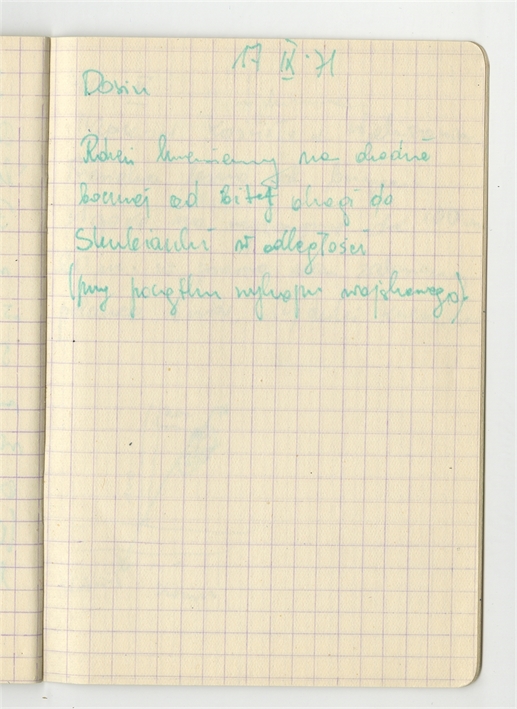 17 IX 71
Dosin
Rdzeń krzemienny na drodze
bocznej od bitej drogi do
Skubianki w odległości
(przy początku wykopu wojskowego).